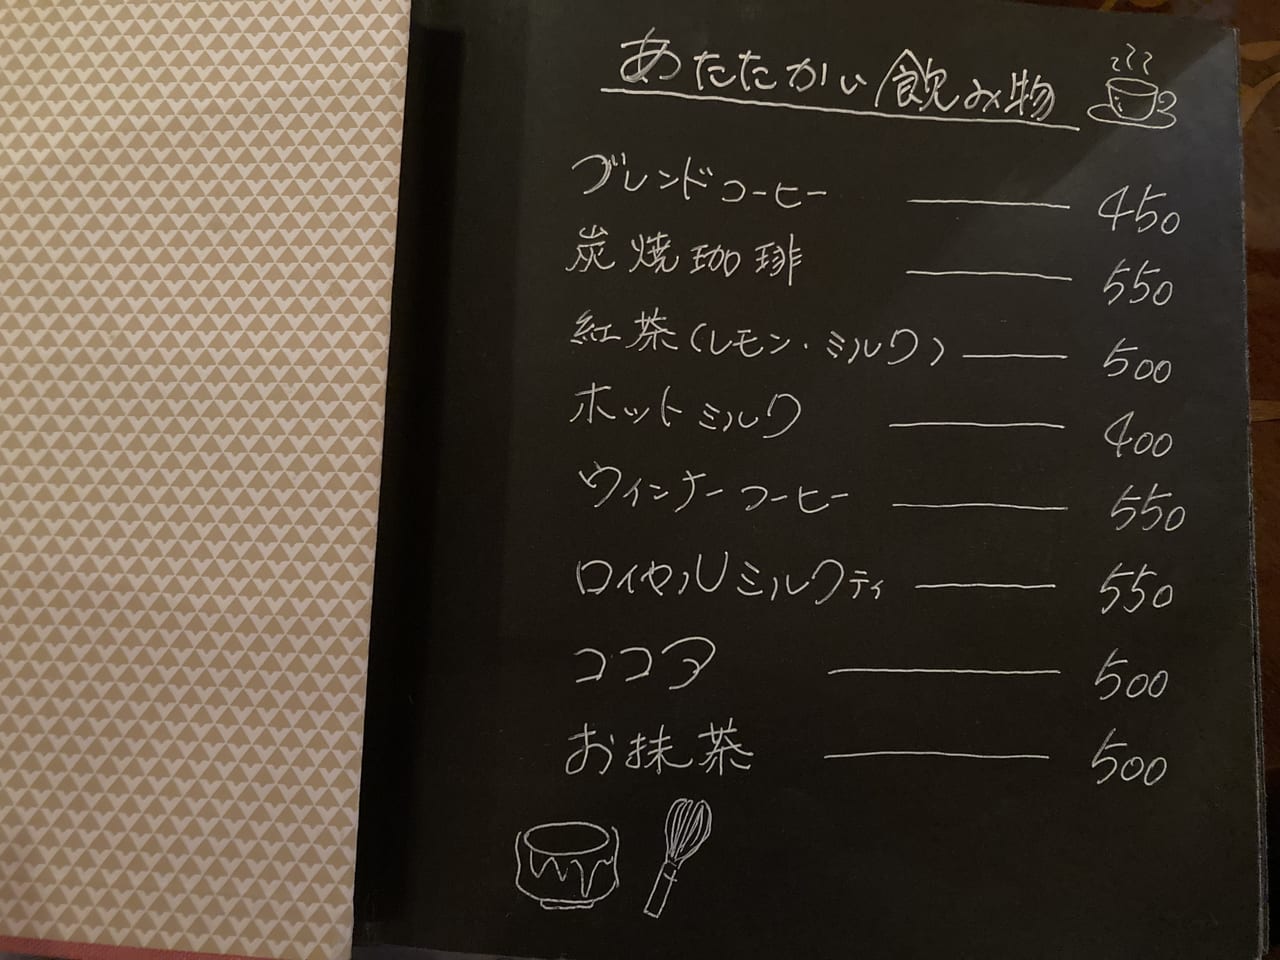 あたたかい飲み物
ブレンドコーヒー 450
炭焼珈琲 550
紅茶(レモン・ミルク) 500
ホットミルク 400
ウィンナーコーヒー 550
ロイヤルミルクティ 550
ココア 500
お抹茶 500